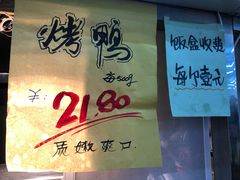 烤鸭
每500g
¥:21.80
质嫩爽口
饭盒收费
每个壹元